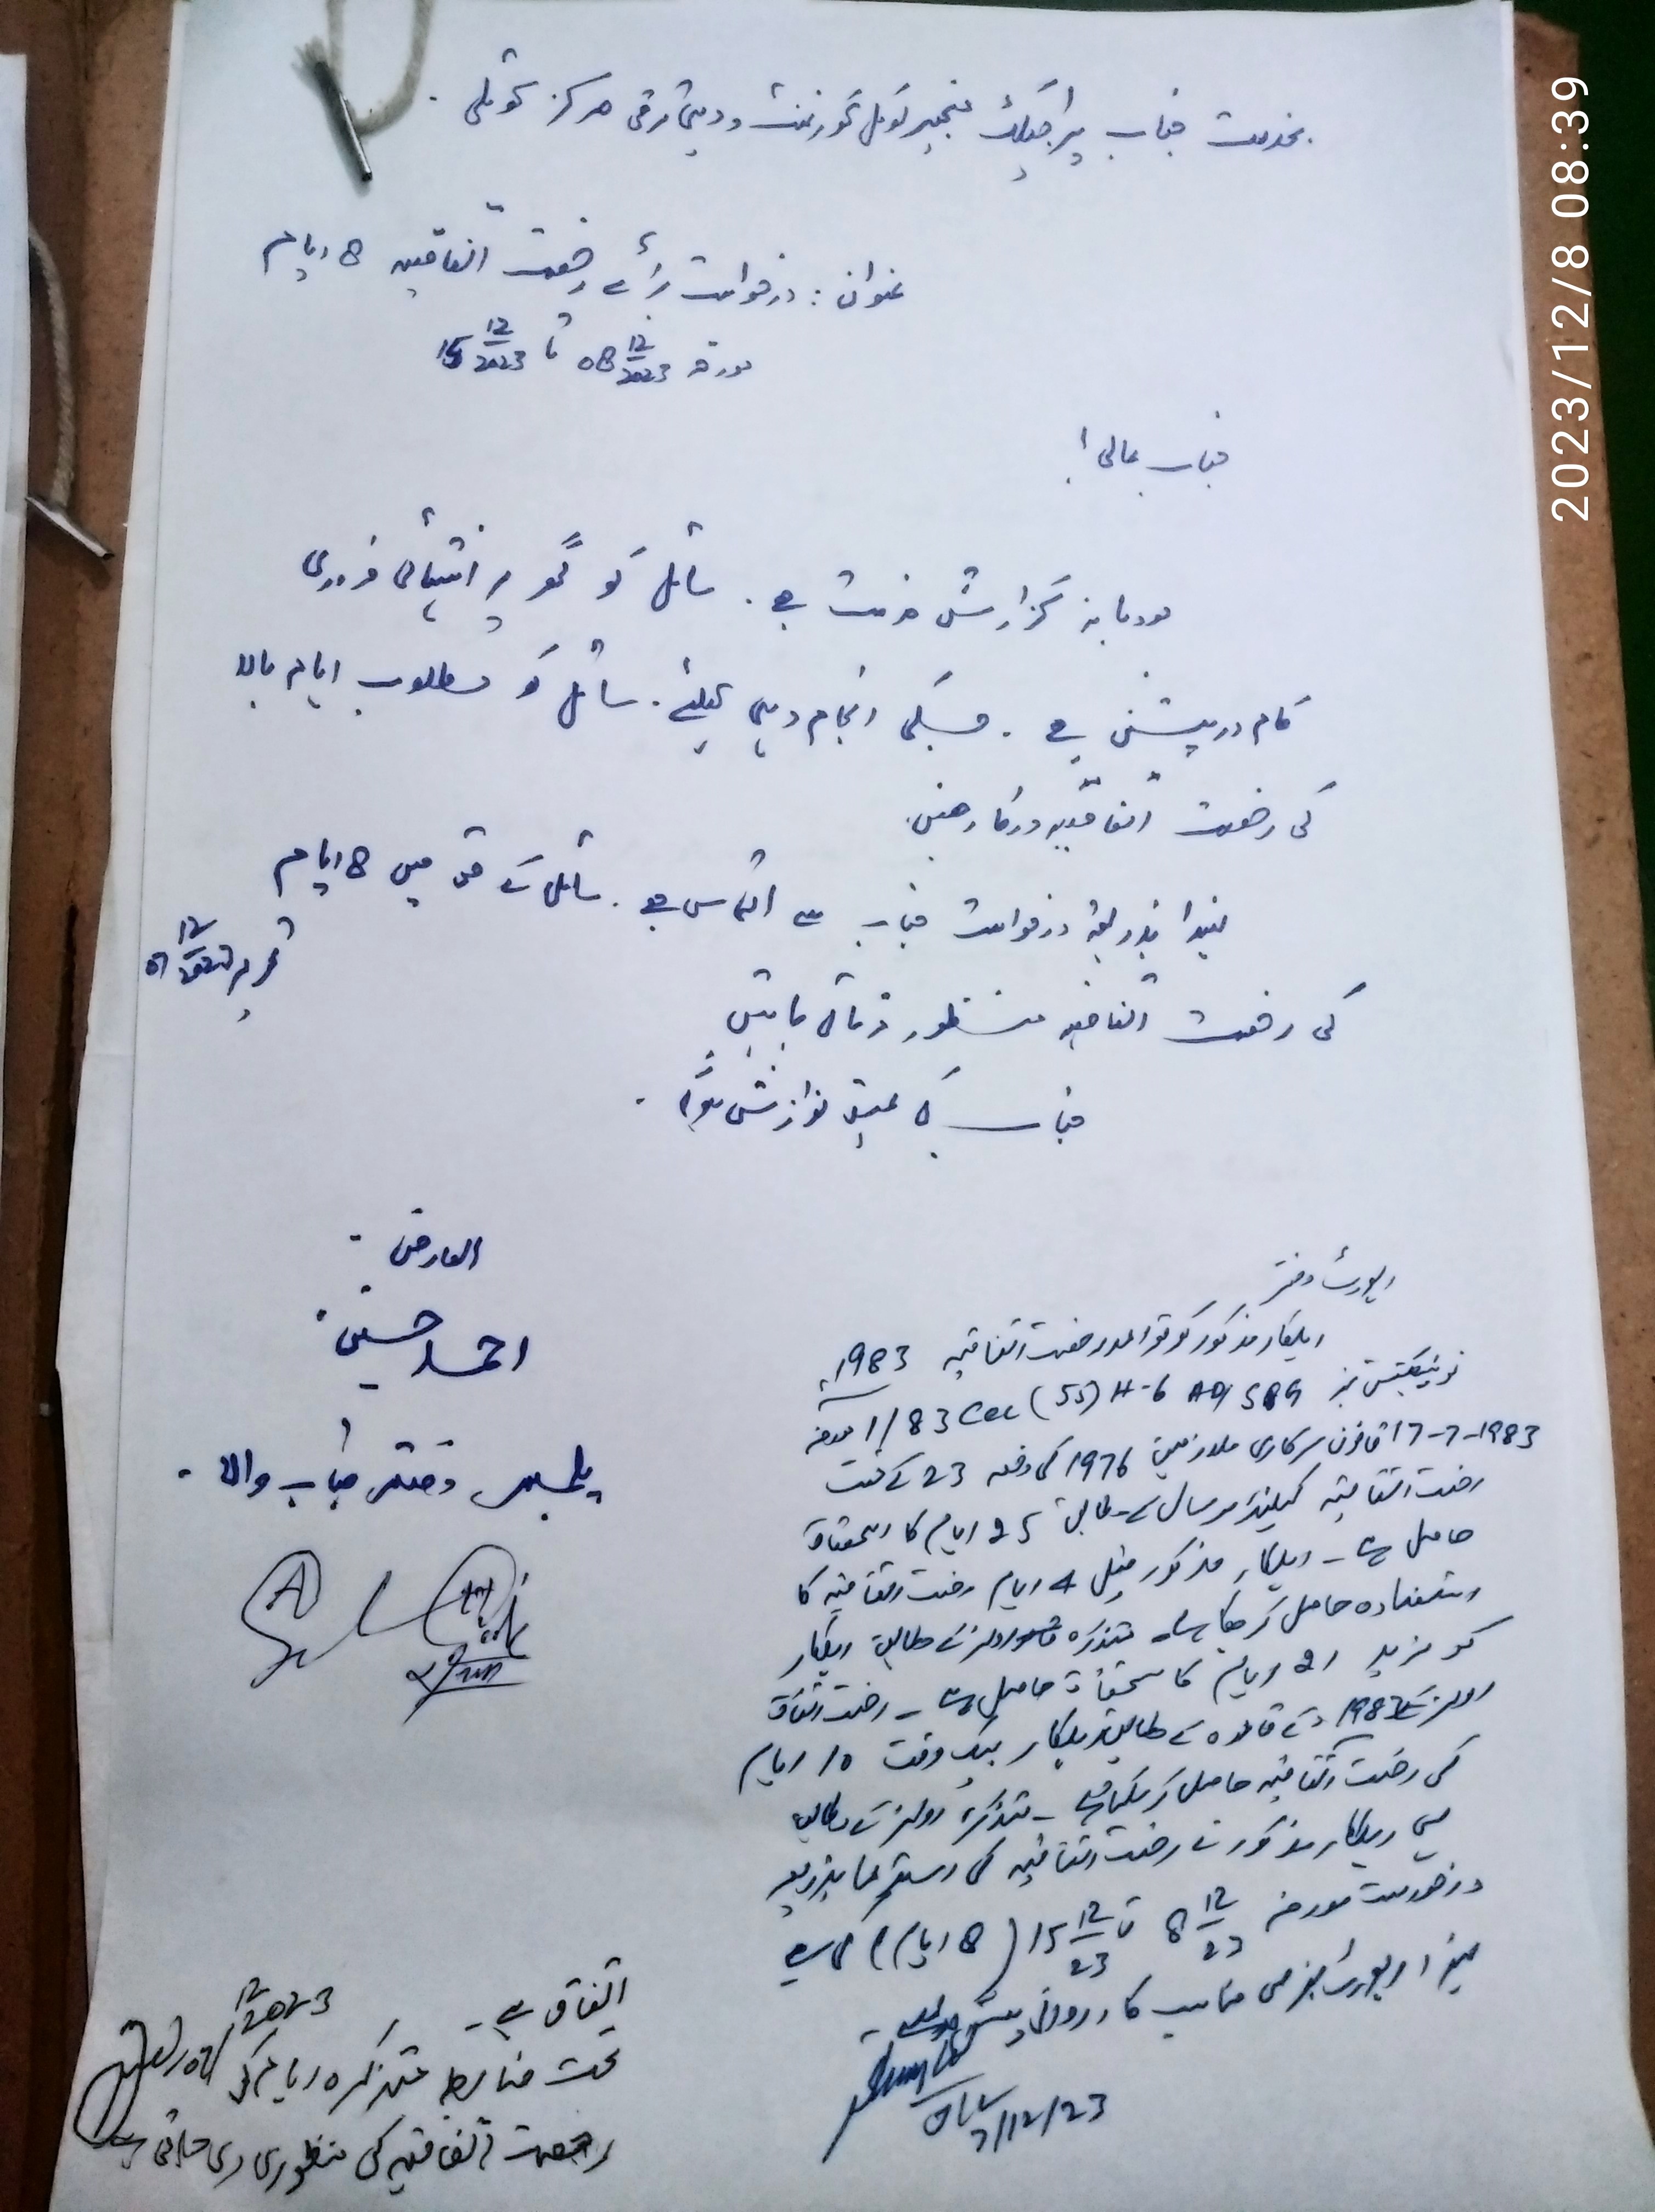 بخدمت جناب پراجیکٹ منیجر لوکل گورنمنٹ و دیہی ترقی مرکز کوٹلی .
عنوان : درخواست برائے رخصت اتفاقیہ 8 ایام
مورخہ 08 12/2023 تا 15 12/2023
جناب عالی !
مودبانہ گزارش خدمت ہے . سائل کو گھر پر انتہائی ضروری
کام درپیش ہے . جسکی انجام دہی کیلئے . سائل کو مطلوب ایام بالا
کی رخصت اتفاقیہ درکار ھیں.
لہذا بذریعہ درخواست جناب سے التماس ہے . سائل کے حق میں 8 ایام
کی رخصت اتفاقیہ منظور فرمائی جائیں
تحریر 12/2023
جناب کی عین نوازش ہوگی .
العارض :
احمد حسین
پلمبر دفتر جناب والا -
رپورٹ دفتر
اہلکار مذکور کو قواعد رخصت اتفاقیہ 1983ء
نوٹیفکیشن نمبر 1/83 Sec (SS) H-6 مورخہ
17-7-1983 قانون سرکاری ملازمین 1976 کی دفعہ 23 کے تحت
رخصت اتفاقیہ کیلنڈر سال کے مطابق 25 ایام کا استحقاق
حاصل ہے - اہلکار مذکور قبل 4 ایام رخصت اتفاقیہ کا
استفادہ حاصل کر چکا ہے۔ متذکرہ رولز کے مطابق اہلکار
کو مزید 21 ایام کا استحقاق حاصل ہے - رخصت اتفاقی
رولز 1983 کے قاعدہ کے مطابق اہلکار بیک وقت 10 ایام
کی رخصت اتفاقیہ حاصل کر سکتا ہے - متذکرہ رولز کے مطابق
ہی اہلکار مذکور نے رخصت اتفاقیہ کی استدعا بذریعہ
درخواست مورخہ 8 12/23 تا 15 12/23 ( 8 ایام ) کی ہے
لہذا رپورٹ بغرض مناسب کارروائی پیش ہے -
7/12/23
اتفاق ہے -
تحت ضابطہ متذکرہ ایام کی
رخصت اتفاقیہ کی منظوری دی جاتی ہے
12/2023
2023/12/8 08:39